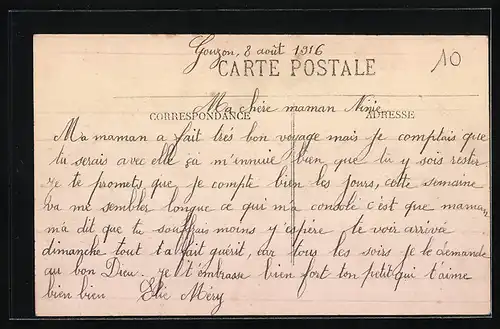 Gouzon, 8 août 1916
10
CARTE POSTALE
Ma chère maman Ninie
CORRESPONDANCE
ADRESSE
Ma maman a fait trés bon voyage mais je comptais que
tu serais avec elle ça m'ennuie bien que tu y sois rester
je te promets que je compte bien les jours, cette semaine
va me sembler longue ce qui m'a consolé c'est que maman
m'a dit que tu souffrais moins j'espère te voir arriva
dimanche tout t'a fait guérit, car tous les soirs je le demande
au bon Dieu. je t'embrasse bien fort ton petit qui t'aime
bien bien Elie Méry